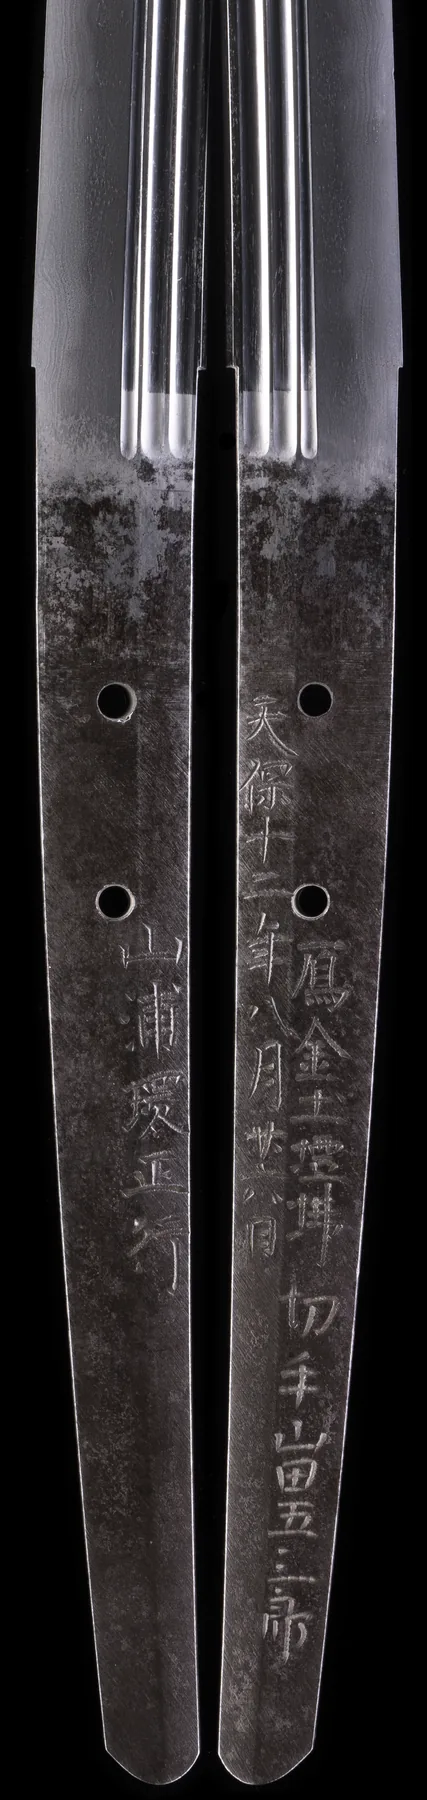 鳫金土壇拂 切手山田五三郎
天保十二年八月廿八日
山浦環正行